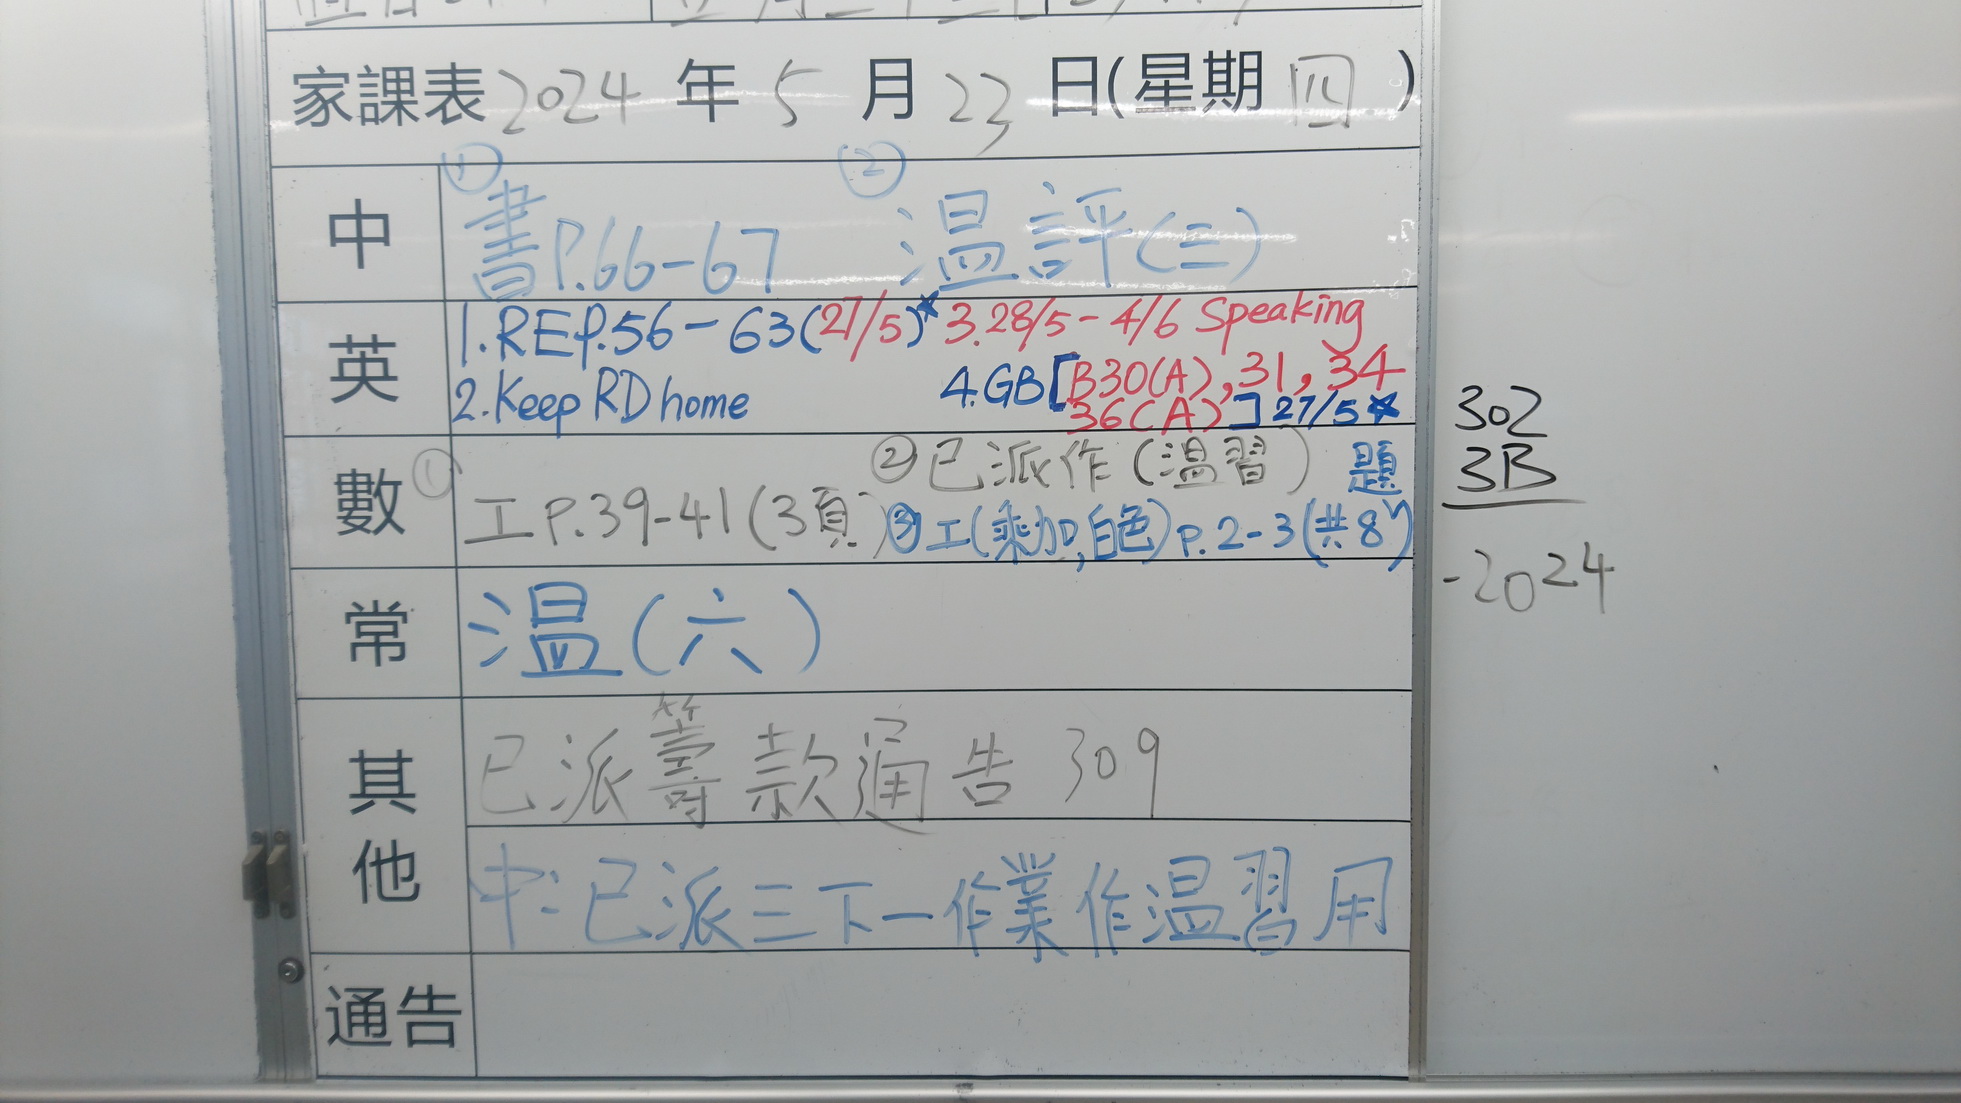 家課表 2024 年 5 月 23 日(星期 四 )
中 ① 書P.66-67 ② 温評(三)
英 1.REP.56-63(27/5)* 3.28/5-4/6 Speaking
2.Keep RD home 4.GB[B30(A),31,34
36(A)] 27/5*
數 ① 工P.39-41(3頁) ② 已派作(温習)
③ 工(乘加,白色)P.2-3(共8題)
常 温(六)
其他 已派籌款通告309
中:已派三下一作業作温習用
通告
302
3B
-2024